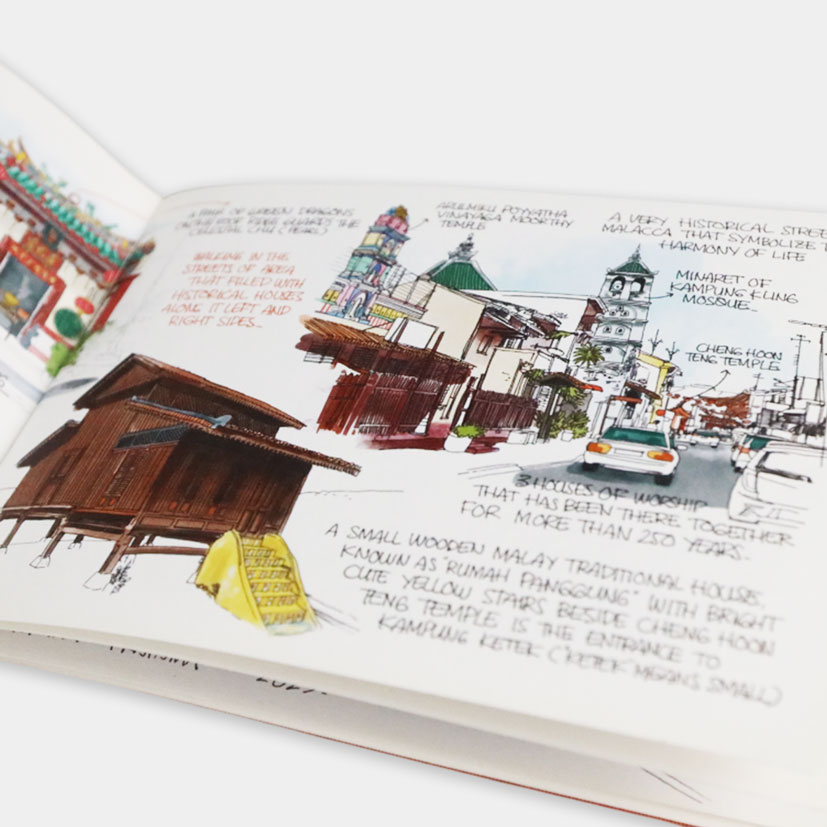 A PAIR OF GREEN DRAGONS
ON THE ROOF RIDGE GUARDS THE
CELESTIAL CHU (PEARL)
WALKING IN THE
STREETS OF AREA
THAT FILLED WITH
HISTORICAL HOUSES
ALONG IT LEFT AND
RIGHT SIDES_
ARULMIKU POYYATHA
VINAYAGA MOORTHY
TEMPLE
A VERY HISTORICAL STREE
MALACCA THAT SYMBOLIZE T
HARMONY OF LIFE
MINARET OF
KAMPUNG KLING
MOSQUE_
CHENG HOON
TENG TEMPLE
3 HOUSES OF WORSHIP
THAT HAS BEEN THERE TOGETHER
FOR MORE THAN 250 YEARS_
A SMALL WOODEN MALAY TRADITIONAL HOUSE,
KNOWN AS "RUMAH PANGGUNG" WITH BRIGHT
CUTE YELLOW STAIRS BESIDE CHENG HOON
TENG TEMPLE IS THE ENTRANCE TO
KAMPUNG KETEK ('KETEK' MEANS SMALL)